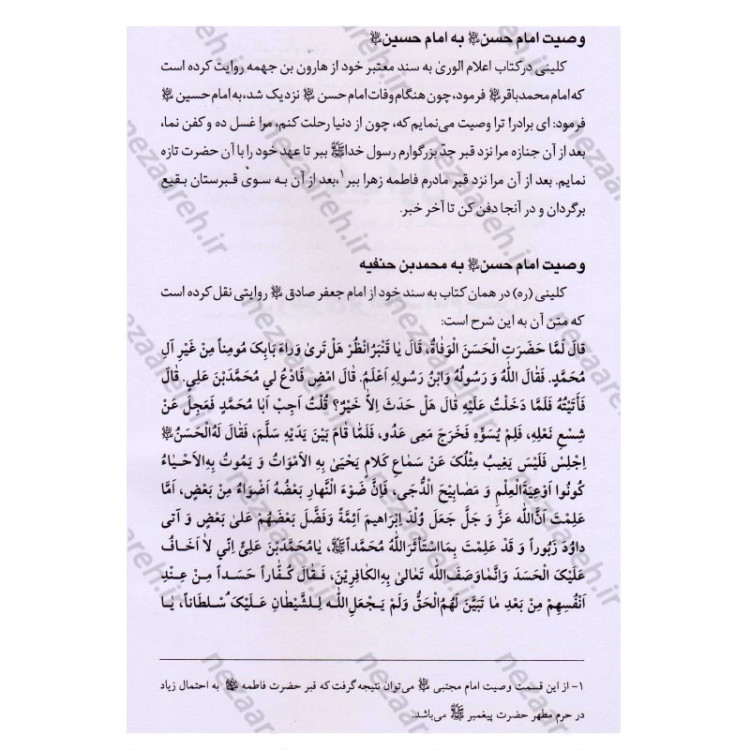 وصیت امام حسن﵇ به امام حسین﵇
کلینی درکتاب اعلام الوری به سند معتبر خود از هارون بن جهمه روایت کرده است
که امام محمدباقر﵇ فرمود، چون هنگام وفات امام حسن ﵇ نزدیک شد، به امام حسین ﵇
فرمود: ای برادر! ترا وصیت می‌نمایم که، چون از دنیا رحلت کنم، مرا غسل ده و کفن نما،
بعد از آن جنازه مرا نزد قبر جدّ بزرگوارم رسول خداﷺ ببر تا عهد خود را با آن حضرت تازه
نمایم. بعد از آن مرا نزد قبر مادرم فاطمه زهرا ببر۱،بعد از آن به سوی قبرستان بقیع
برگردان و در آنجا دفن کن تا آخر خبر.
وصیت امام حسن﵇ به محمدبن حنفیه
کلینی (ره) در همان کتاب به سند خود از امام جعفر صادق ﵇ روایتی نقل کرده است
که متن آن به این شرح است:
قالَ لَمّا حَضَرَتِ الْحَسَنَ الْوَفاةُ، قالَ یا قَنْبَرُ انْظُرْ هَلْ تَریٰ وَراءَ بابِکَ مُومِناً مِنْ غَیْرِ آلِ
مُحَمَّدٍ. فَقالَ اللّٰهُ وَ رَسُولُهُ وَابْنُ رَسُولِهِ اَعْلَمُ. قالَ امْضِ فَادْعُ لی مُحَمَّدَبْنَ عَلِی. قالَ
فَأَتَیْتُهُ فَلَمّا دَخَلْتُ عَلَیْهِ قالَ هَلْ حَدَثَ اِلاّ خَیْرٌ؟ قُلْتُ اَجِبْ اَبا مُحَمَّدٍ فَعَجِلَ عَنْ
شِسْعِ نَعْلِهِ، فَلَمْ یُسَوِّهِ فَخَرَجَ مَعِی عَدُو، فَلَمّا قامَ بَیْنَ یَدَیْهِ سَلَّمَ، فَقالَ لَهُ الْحَسَنُ﵇
اِجْلِسْ فَلَیْسَ یَغیبُ مِثْلُکَ عَنْ سَماعِ کَلامٍ یَحْییٰ بِهِ الْاَمْواتُ وَ یَمُوتُ بِهِ الْاَحْیاءُ
کُونُوا اَوْعِیَةَ الْعِلْمِ وَ مَصابیحَ الدُّجیٰ، فَاِنَّ ضَوْءَ النَّهارِ بَعْضُهُ اَضْواءُ مِنْ بَعْضٍ، اَمّا
عَلِمْتَ اَنَّ اللّٰهَ عَزَّ وَ جَلَّ جَعَلَ وُلْدَ اِبْراهیمَ اَئِمَّةً وَفَضَّلَ بَعْضَهُمْ عَلیٰ بَعْضٍ وَ آتی
داوُدَ زَبُوراً وَ قَدْ عَلِمْتَ بِمَا اسْتَأثَرَ اللّٰهُ مُحَمَّداًﷺ، یا مُحَمَّدَبْنَ عَلِیٍّ اِنّی لا اَخافُ
عَلَیْکَ الْحَسَدَ وَ اِنَّما وَصَفَ اللّٰه تَعالیٰ بِهِ الْکافِرینَ، فَقالَ کُفّاراً حَسَداً مِنْ عِنْدِ
اَنْفُسِهِمْ مِنْ بَعْدِ ما تَبَیَّنَ لَهُمُ الْحَقُّ وَلَمْ یَجْعَلِ اللّٰه لِلشَّیْطانِ عَلَیْکَ سُلْطاناً، یا
۱- از این قسمت وصیت امام مجتبی ﵇ می‌توان نتیجه گرفت که قبر حضرت فاطمه ﵍ به احتمال زیاد
در حرم مطهر حضرت پیغمبر ﷺ می‌باشد.
nezaareh.ir